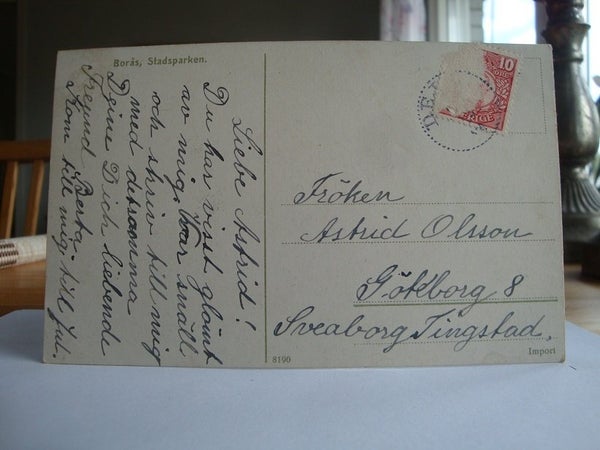 Borås, Stadsparken.
Liebe Astrid!
Du har visst glömt
av mig. Var snäll
och skriv till mig
med detsamma
Deine Dich liebende
Freund Berta
Kom till mig till jul.
10
ERIGE
DE
Fröken
Astrid Olsson
Göteborg 8
Sveaborg Tingstad.
8190
Import